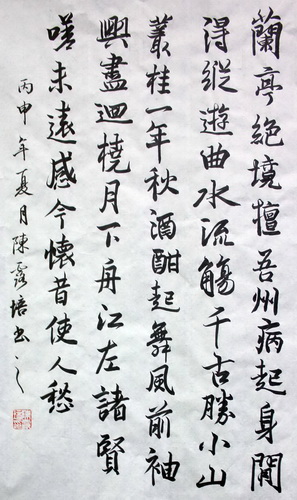 蘭亭絶境擅吾州病起身閒
得縱遊曲水流觴千古勝小山
叢桂一年秋酒酣起舞風前袖
興盡迴橈月下舟江左諸賢
嗟未遠感今懷昔使人愁
丙申年夏月陳露培書之